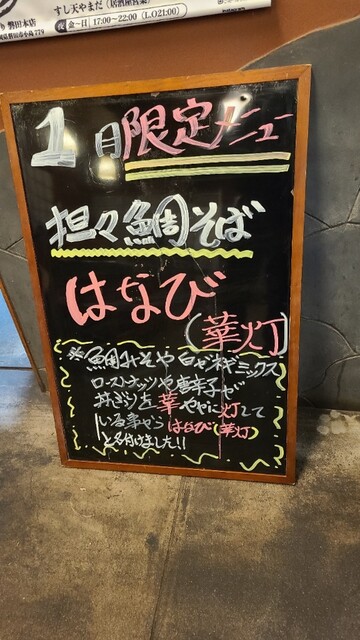 すし天やまだ(居酒屋営業)
磐田本店
夜 金～日 17:00～22:00 (L.O21:00)
1月限定メニュー
担々鯛そば
はなび
(華灯)
※鯛みそや白ゴマネギミックス
ローストナッツや唐辛子が
丼ぶりを華やかに灯して
いる事からはなび(華灯)
と名付けました!!